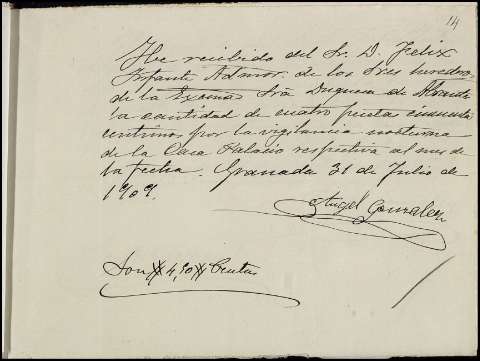 14
He recibido del Sr. D. Felix
Infante Admor. de los Sres herederos
de la Excma Sra Duquesa de
la cantidad de cuatro pesetas cincuenta
centimos por la vigilancia nocturna
de la Casa Palacio respectiva al mes de
la fecha. Granada 31 de Julio de
1909.
Angel Gonzalez
Son # 4,50 #